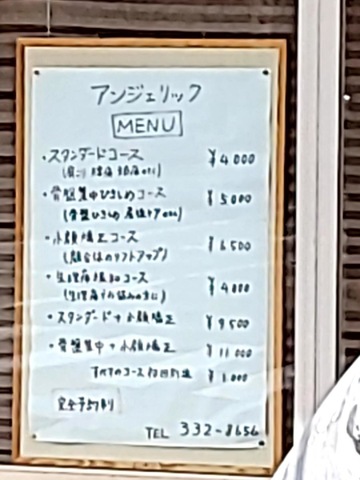 アンジェリック
MENU
・スタンダードコース ¥4000
(肩こり 腰痛 頭痛etc)
・骨盤集中ひきしめコース ¥5000
(骨盤ひきしめ 産後ケアetc)
・小顔矯正コース ¥6500
(顔全体のリフトアップ)
・生理痛緩和コース ¥4000
(生理痛でお悩みの方に)
・スタンダード+小顔矯正 ¥9500
・骨盤集中+小顔矯正 ¥11000
すべてのコース初回割引 ¥1000
完全予約制
TEL 332-8656